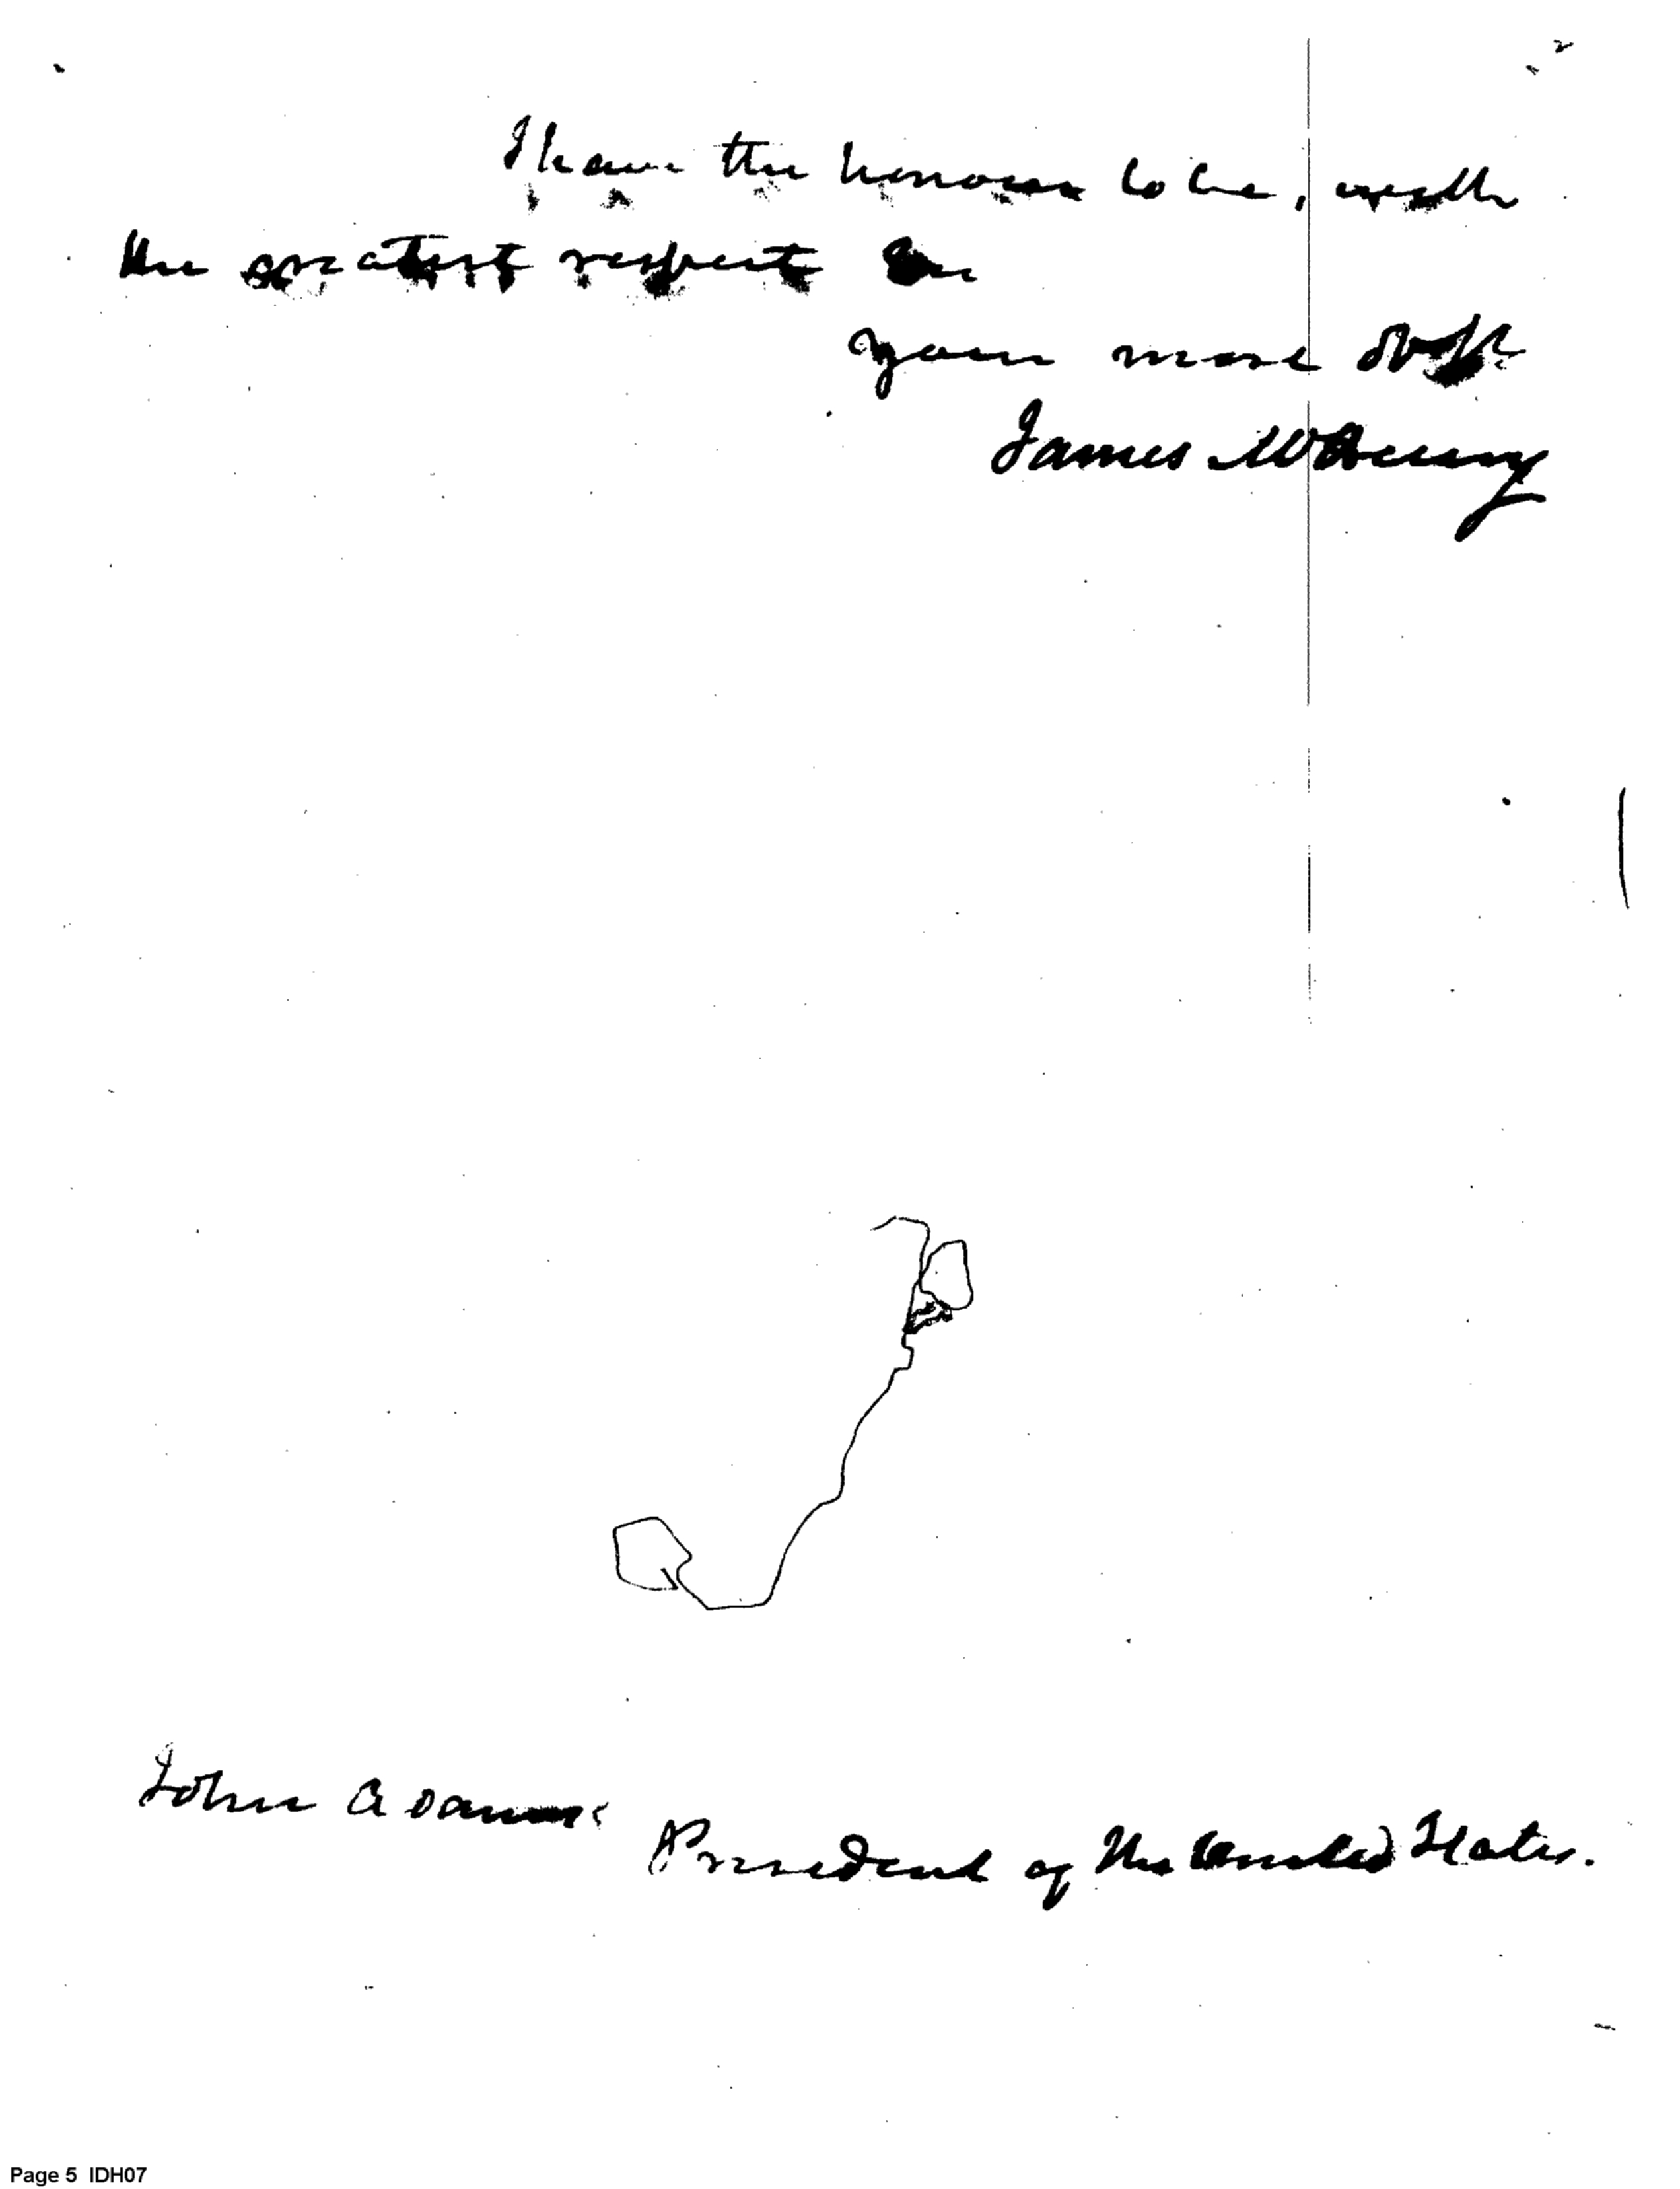 I have the honour to be, with
the greatest respect Sir
your most Obt
James McHenry
John Adams
President of the United States.
Page 5 IDH07